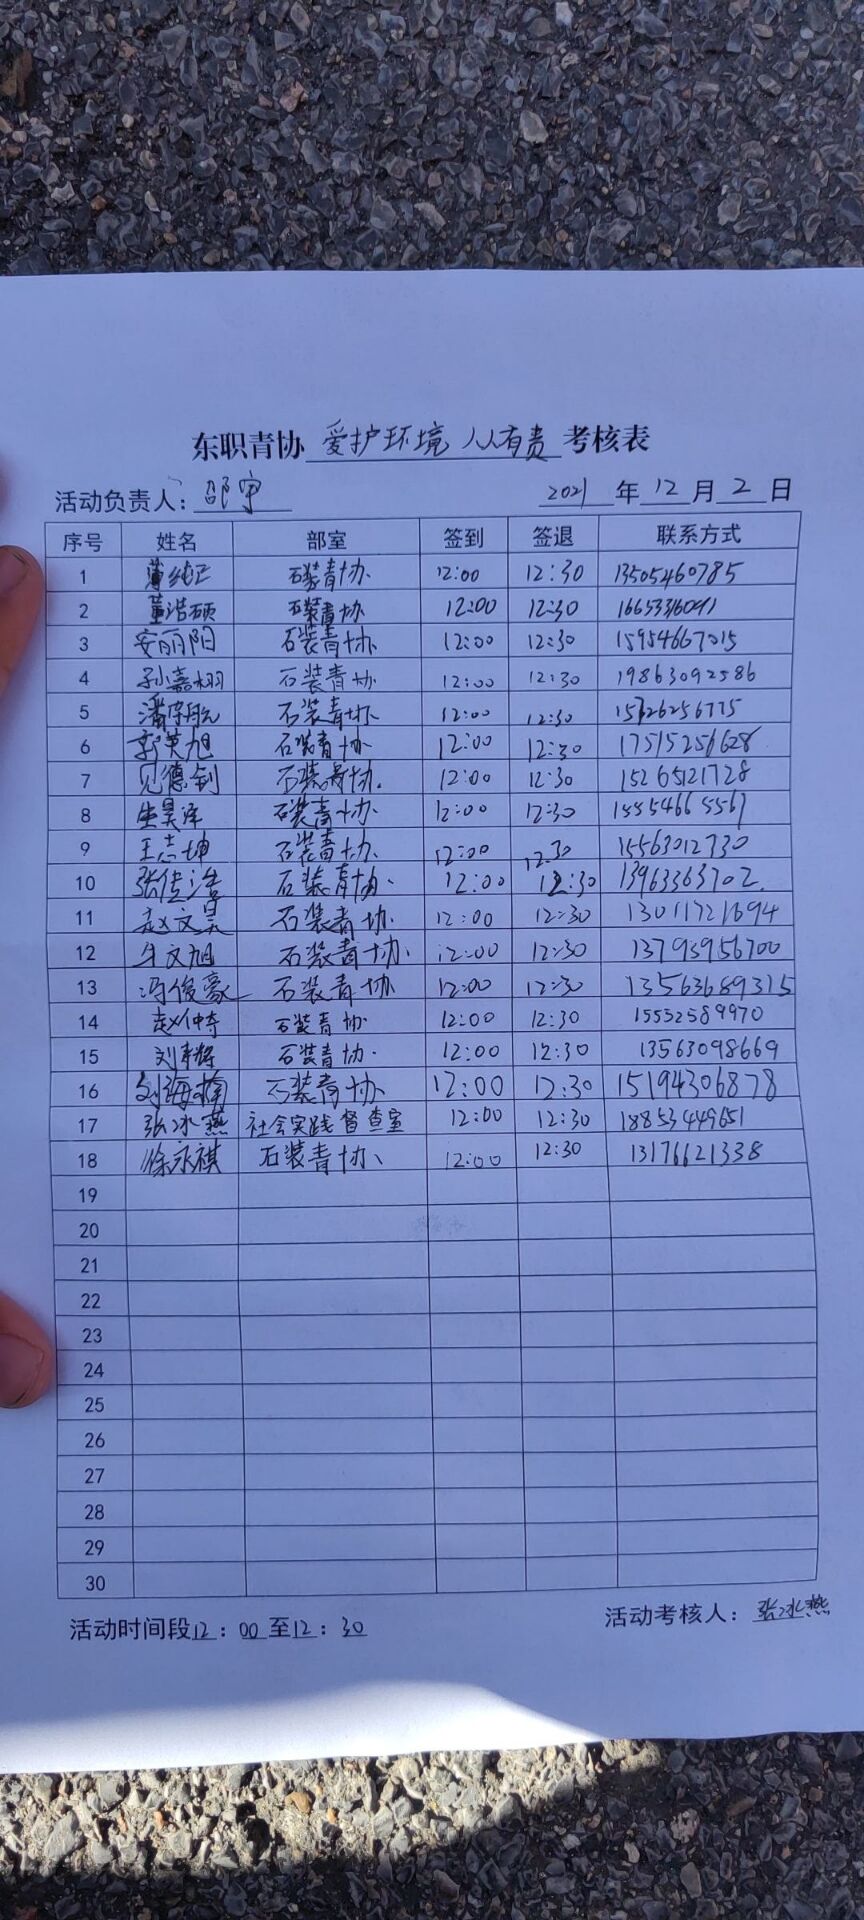 东职青协 爱护环境 人人有责 考核表
活动负责人：邵宇 2021 年 12 月 2 日
序号 姓名 部室 签到 签退 联系方式
1 纯正 石装青协 12:00 12:30 13505460785
2 董浩硕 石装青协 12:00 12:30
3 安丽阳 石装青协 12:00 12:30 15954667015
4 孙嘉栩 石装青协 12:00 12:30 19863092586
5 潘 石装青协 12:00 12:30
6 郭英旭 石装青协 12:00 12:30 17515256628
7 见德钊 石装青协. 12:00 12:30 15265121728
8 昊泽 石装青协 12:00 12:30 15554665567
9 王志坤 石装青协. 12:00 12:30 15563012730
10 张佳浩 石装青协. 12:00 12:30 13963363702.
11 赵文昊 石装青协 12:00 12:30 13011721694
12 牟文旭 石装青协. 12:00 12:30 13793956700
13 冯俊豪 石装青协 12:00 12:30 13563689315
14 赵仲奇 石装青协 12:00 12:30 15552589970
15 刘 石装青协. 12:00 12:30 13563098669
16 刘海楠 石装青协 12:00 12:30 15194306878
17 张冰燕 社会实践督查室 12:00 12:30 18853449651
18 徐永祺 石装青协、 12:00 12:30 13176621338
19
20
21
22
23
24
25
26
27
28
29
30
活动时间段12：00至12：30 活动考核人：张冰燕